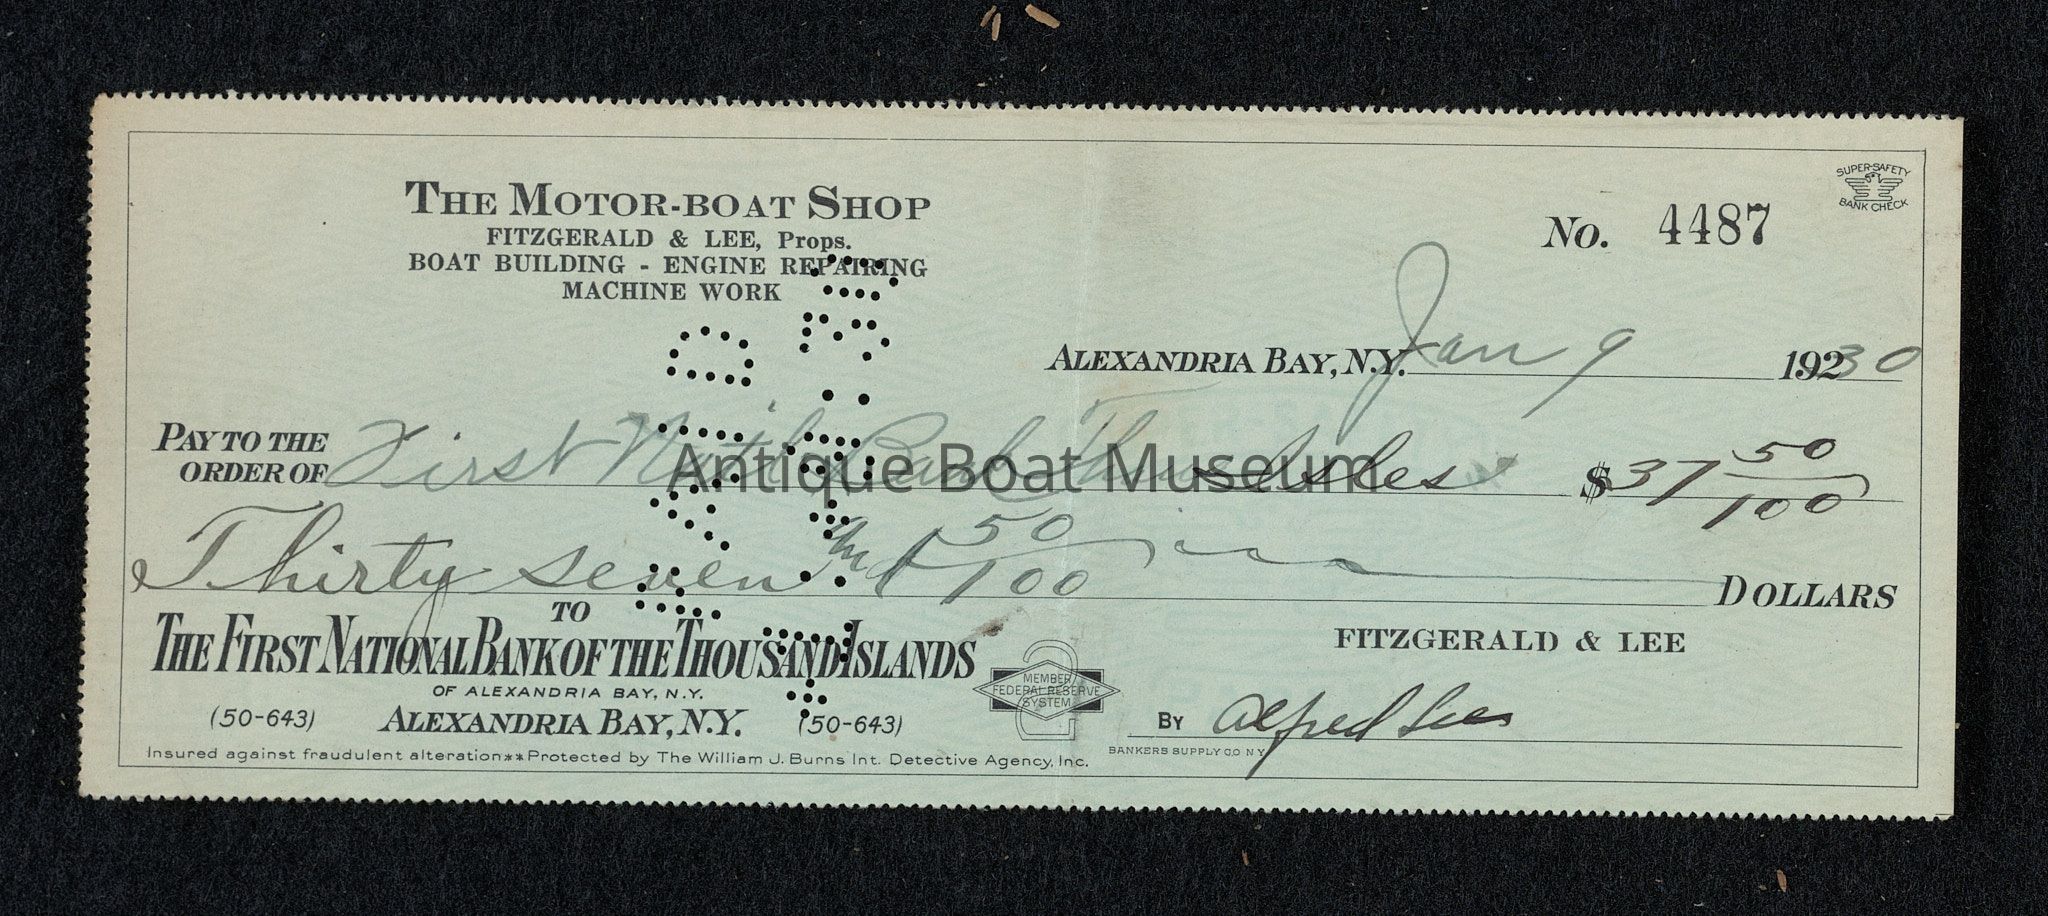 THE MOTOR-BOAT SHOP
FITZGERALD & LEE, Props.
BOAT BUILDING - ENGINE REPAIRING
MACHINE WORK
SUPER-SAFETY
BANK CHECK
No. 4487
ALEXANDRIA BAY, N.Y. Jan 9 19230
PAY TO THE
ORDER OF First Natl Bank Thu Isles $37 50/100
Antique Boat Museum
Thirty seven and 50/100 DOLLARS
TO
THE FIRST NATIONAL BANK OF THE THOUSAND ISLANDS
OF ALEXANDRIA BAY, N.Y.
(50-643) ALEXANDRIA BAY, N.Y. (50-643)
MEMBER
FEDERAL RESERVE
SYSTEM
FITZGERALD & LEE
BY Alfred Lee
BANKERS SUPPLY CO N Y
Insured against fraudulent alteration**Protected by The William J. Burns Int. Detective Agency, Inc.